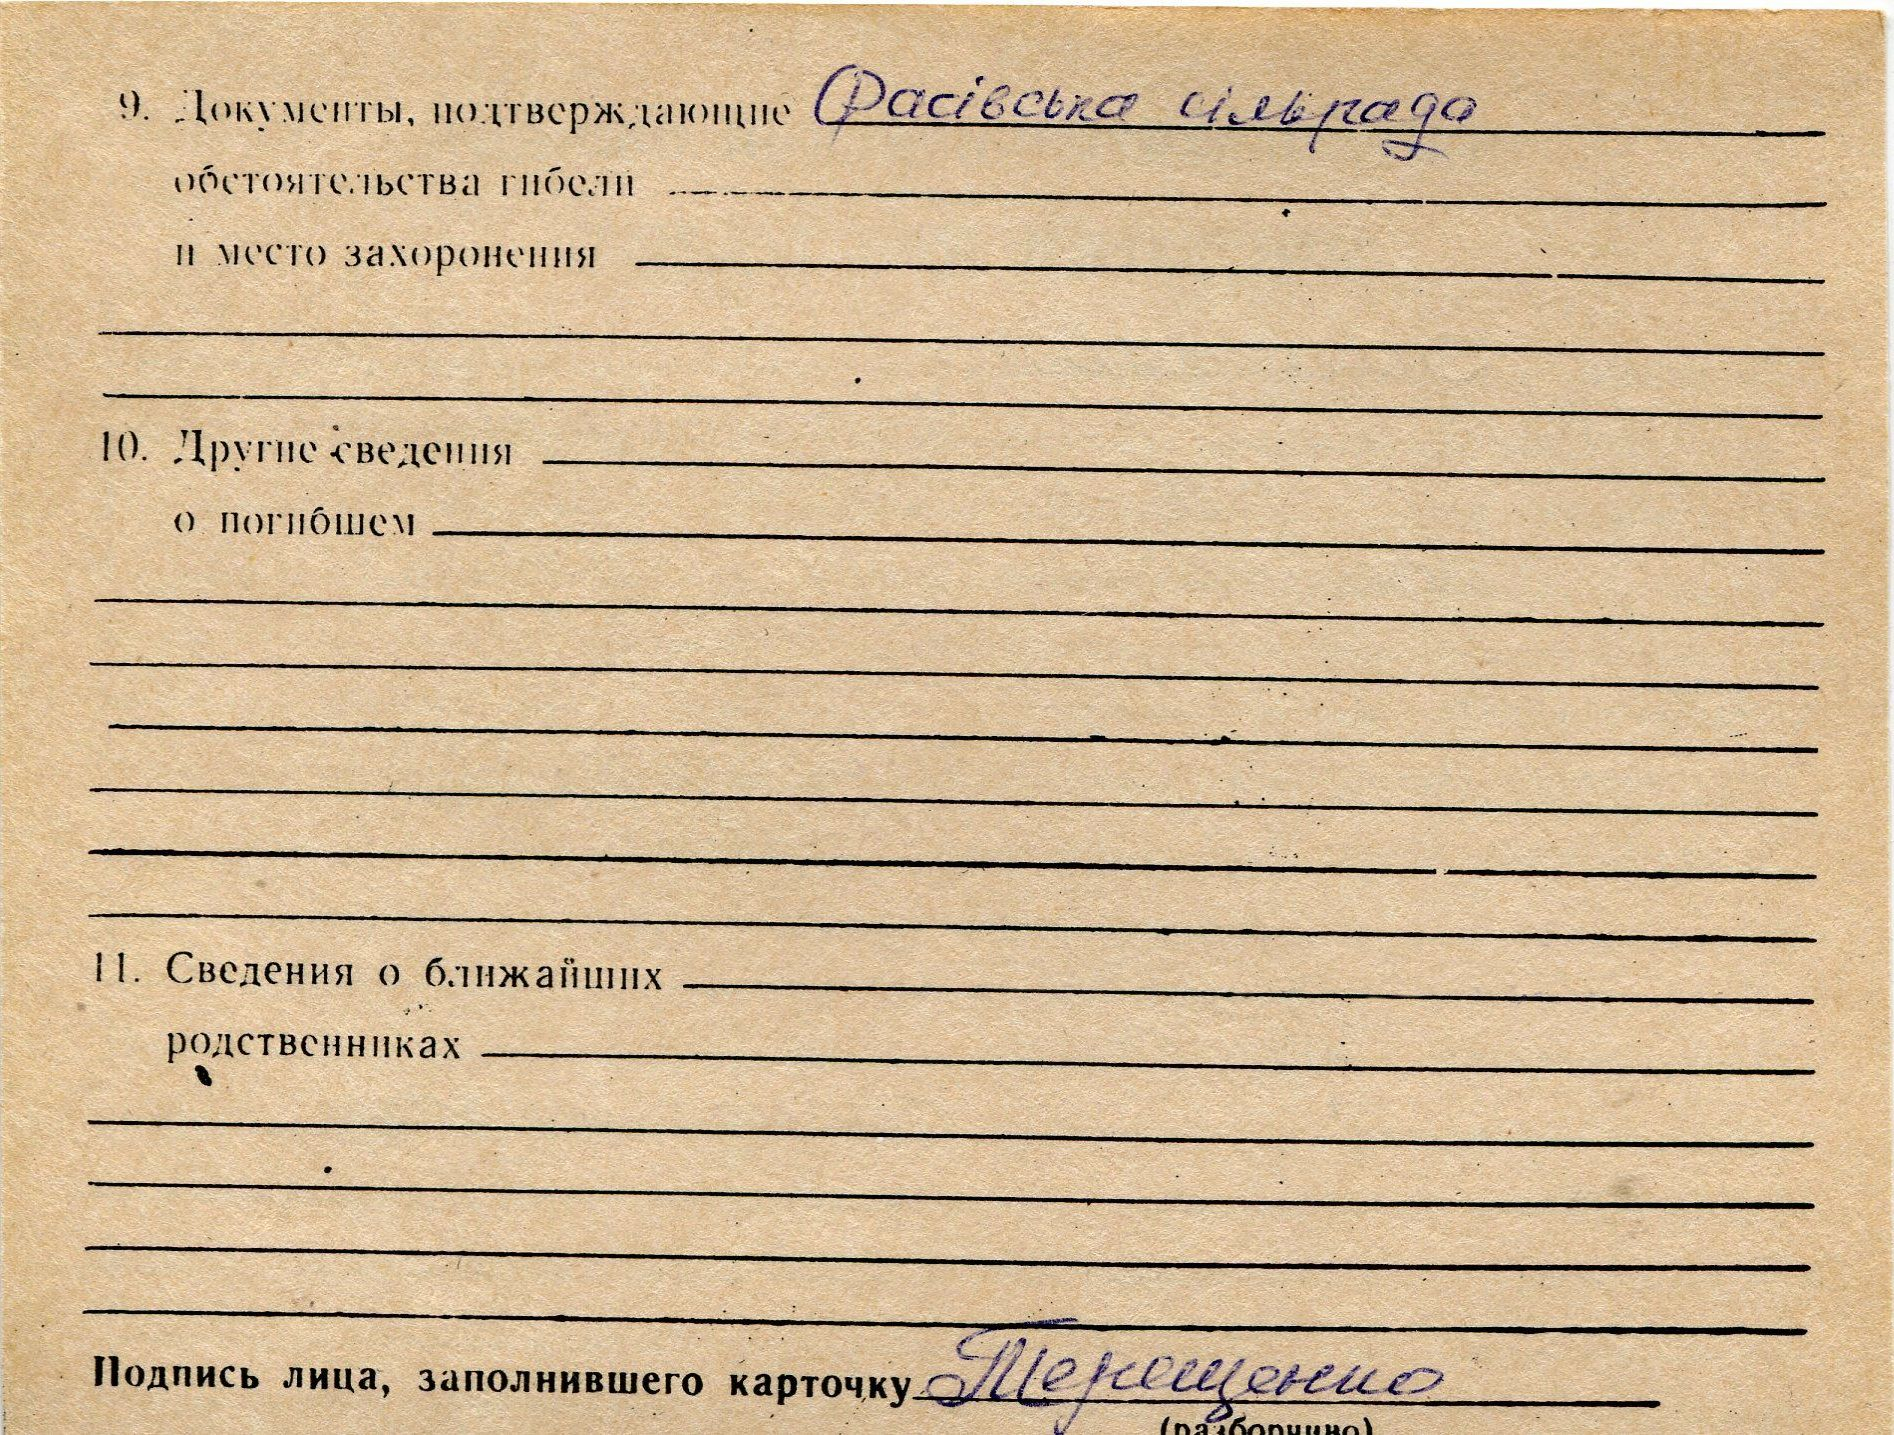 9. Документы, подтверждающие Фасівська сільрада
обстоятельства гибели
и место захоронения
10. Другие сведения
о погибшем
11. Сведения о ближайших
родственниках
Подпись лица, заполнившего карточку Терещенко
(разборчиво)